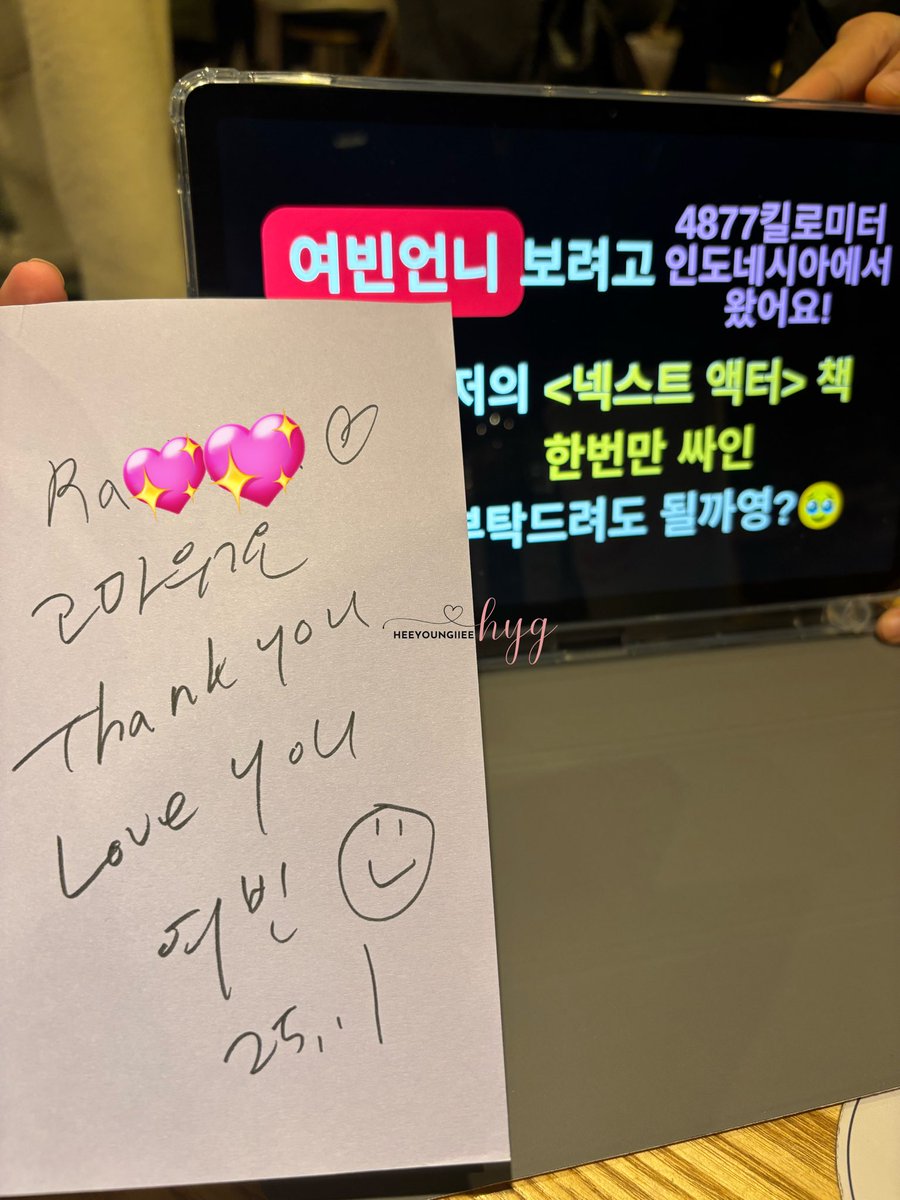 여빈언니 보려고 4877킬로미터
인도네시아에서
왔어요!
저의 <넥스트 액터> 책
한번만 싸인
부탁드려도 될까영?🥹
Ra
고마워요
Thank you
Love you
여빈
25. 1
HEEYOUNGIIEE hyg